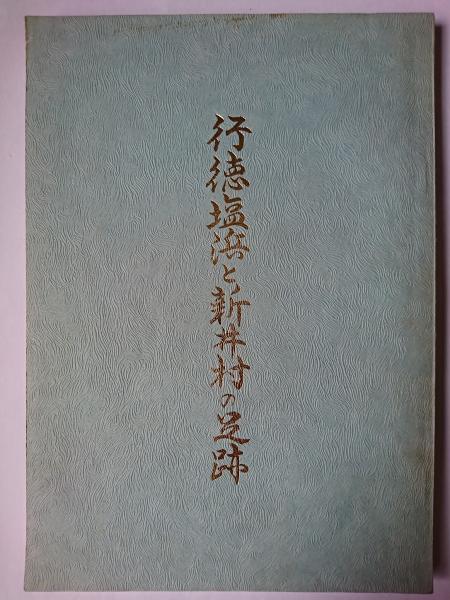 行徳塩浜と新井村の足跡